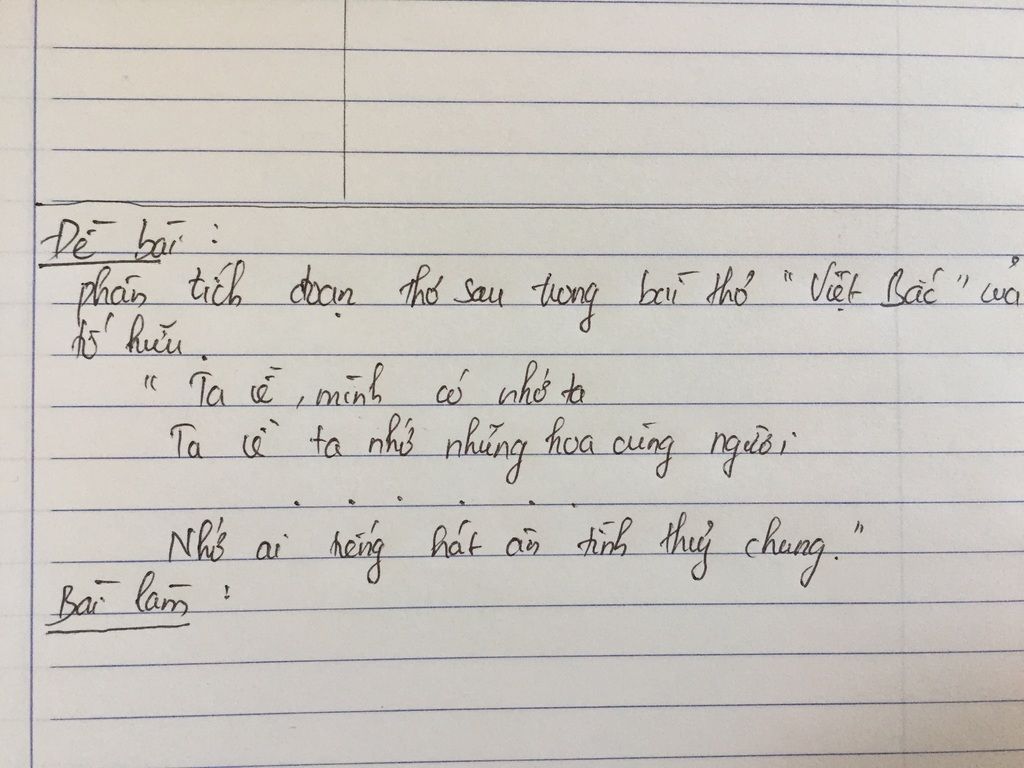 Đề bài :
phân tích đoạn thơ sau trong bài thơ "Việt Bắc" của
tố hữu.
" Ta về, mình có nhớ ta
Ta về ta nhớ những hoa cùng người
. . . . . .
Nhớ ai tiếng hát ân tình thuỷ chung."
Bài làm :